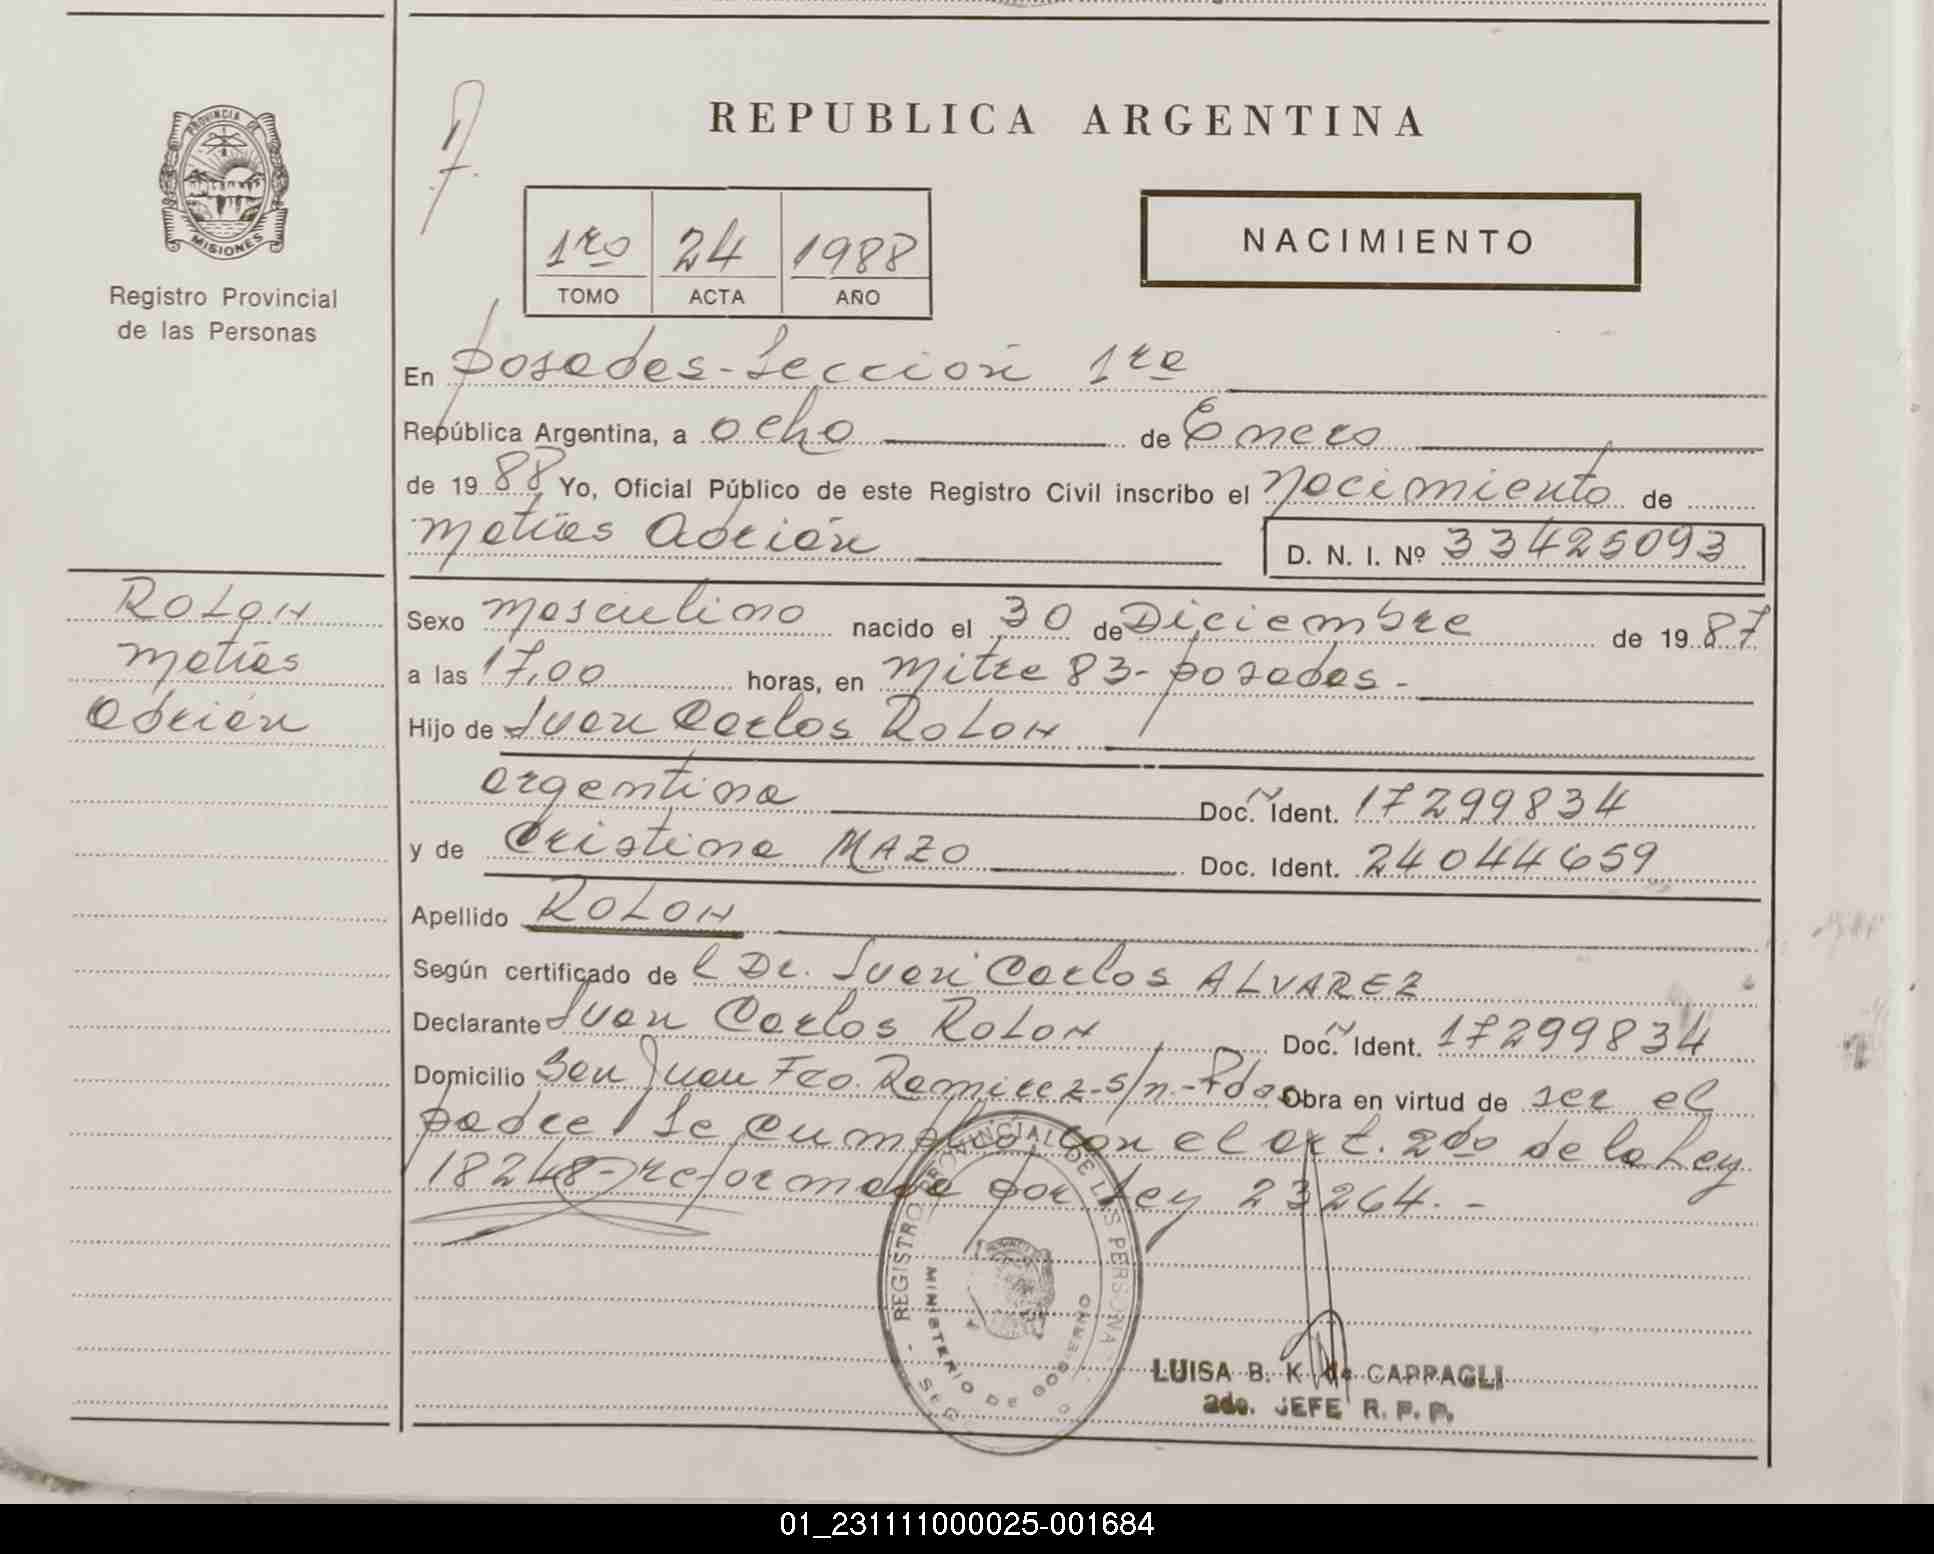 REPUBLICA ARGENTINA
PROVINCIA DE
MISIONES
Registro Provincial
de las Personas
1ro 24 1988
TOMO ACTA AÑO
NACIMIENTO
En Posadas - Sección 1ra
República Argentina, a ocho de Enero
de 1988 Yo, Oficial Público de este Registro Civil inscribo el nacimiento de
Matías Adrián
D. N. I. Nº 33425093
ROLON
Matías
Adrián
Sexo Masculino nacido el 30 de Diciembre de 1987
a las 17,00 horas, en Mitre 83 - Posadas -
Hijo de Juan Carlos ROLON
argentina Doc. Ident. 17299834
y de Cristina MAZO Doc. Ident. 24044659
Apellido ROLON
Según certificado de l Dr. Juan Carlos ALVAREZ
Declarante Juan Carlos ROLON Doc. Ident. 17299834
Domicilio San Juan Fco. Ramirez - s/n. - Pdas Obra en virtud de ser el
padre Se cumplió con el art. 2do de la Ley
18248 - reformada por Ley 23264. -
REGISTRO PROVINCIAL DE LAS PERSONAS
MINISTERIO DE GOBIERNO
LUISA B. K. de CAPPAGLI
ado. JEFE R. P. P.
01_231111000025-001684